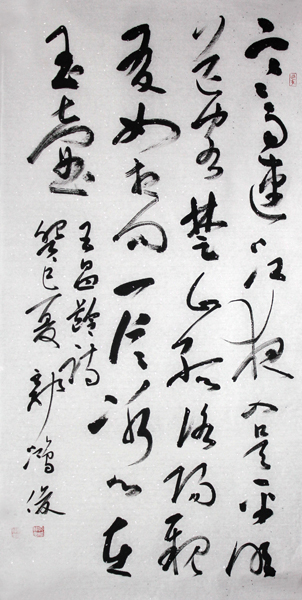 寒雨連江夜入吴平明
送客楚山孤洛陽親
友如相问一片冰心在
玉壺
王昌齡詩
癸巳夏鴻俊